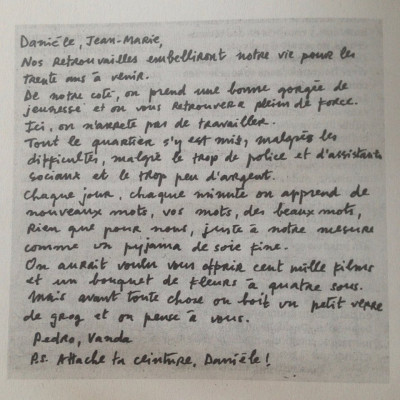 Danièle, Jean-Marie,
Nos retrouvailles embelliront notre vie pour les
trente ans à venir.
De notre côté, on prend une bonne gorgée de
jeunesse et on vous retrouvera pleins de force.
Ici, on n'arrête pas de travailler.
Tout le quartier s'y est mis, malgrès les
difficultés, malgré le trop de police et d'assistants
sociaux et le trop peu d'argent.
Chaque jour, chaque minute on apprend de
nouveaux mots, vos mots, des beaux mots,
Rien que pour nous, juste à notre mesure
comme un pyjama de soie fine.
On aurait voulu vous offrir cent mille films
et un bouquet de fleurs à quatre sous.
Mais avant toute chose on boit un petit verre
de grog et on pense à vous.
Pedro, Vanda
P.S. Attache ta ceinture, Danièle!